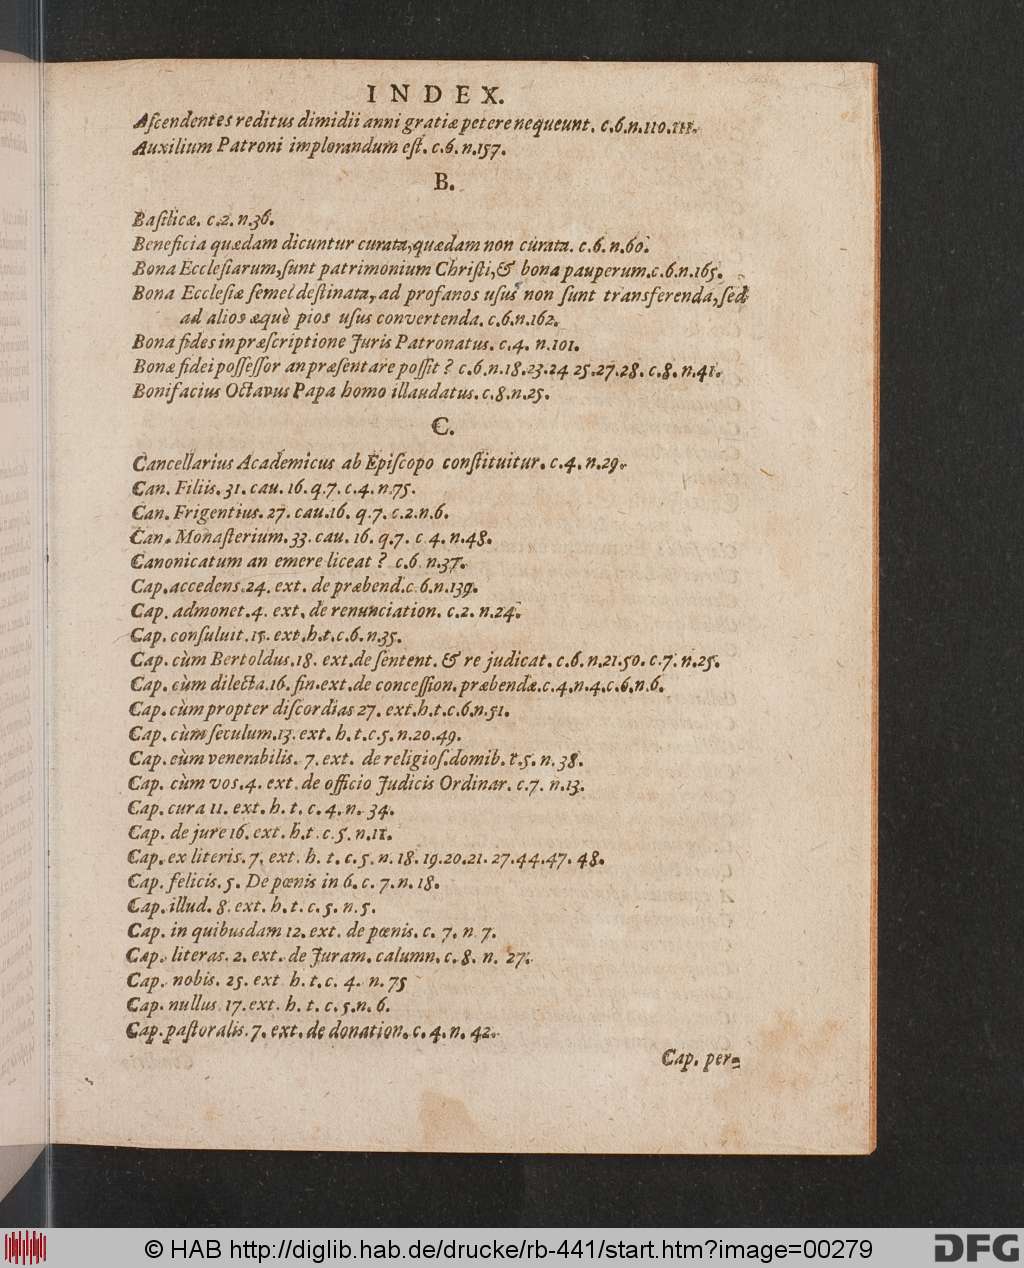 INDEX.
Aſcendentes reditus dimidii anni gratiæ petere nequeunt. c.6.n.110.111.
Auxilium Patroni implorandum eſt. c.6.n.157.
B.
Baſilicæ. c.2.n.36.
Beneficia quædam dicuntur curata, quædam non curata. c.6.n.60.
Bona Eccleſiarum, ſunt patrimonium Chriſti, & bona pauperum. c.6.n.165.
Bona Eccleſiæ ſemel deſtinata, ad profanos uſus non ſunt transferenda, ſed
ad alios æquè pios uſus convertenda. c.6.n.162.
Bona fides in præſcriptione Juris Patronatus. c.4. n.101.
Bonæ fidei poſſeſſor an præſentare poſſit? c.6.n.18.23.24 25.27.28. c.8.n.41.
Bonifacius Octavus Papa homo illaudatus. c.8.n.25.
C.
Cancellarius Academicus ab Epiſcopo conſtituitur. c.4.n.29.
Can. Filiis. 31. cau. 16. q.7. c.4.n.75.
Can. Frigentius. 27. cau.16. q.7. c.2.n.6.
Can. Monaſterium. 33. cau. 16. q.7. c 4. n.48.
Canonicatum an emere liceat? c.6. n.37.
Cap. accedens. 24. ext. de præbend. c 6.n.139.
Cap. admonet. 4. ext. de renunciation. c.2. n.24.
Cap. conſuluit. 15. ext. h.t. c.6. n.35.
Cap. cùm Bertoldus. 18. ext. de ſentent. & re judicat. c.6. n.21.50. c.7. n.25.
Cap. cùm dilecta. 16. fin. ext. de conceſſion. præbendæ. c.4.n.4. c.6.n.6.
Cap. cùm propter diſcordias 27. ext. h.t. c.6.n.51.
Cap. cùm ſeculum. 13. ext. h. t. c.5. n.20.49.
Cap. cùm venerabilis. 7. ext. de religioſ. domib. t.5. n. 38.
Cap. cùm vos. 4. ext. de officio Judicis Ordinar. c.7. n.13.
Cap. cura 11. ext. h. t. c. 4. n. 34.
Cap. de jure 16. ext. h.t. c.5. n.11.
Cap. ex literis. 7. ext. h. t. c. 5. n. 18. 19.20.21. 27.44.47. 48.
Cap. felicis. 5. De pœnis in 6. c. 7. n. 18.
Cap. illud. 8. ext. h. t. c. 5. n. 5.
Cap. in quibusdam 12. ext. de pœnis. c. 7. n 7.
Cap. literas. 2. ext. de Juram. calumn. c. 8. n. 27.
Cap. nobis. 25. ext h. t. c. 4. n. 75
Cap. nullus. 17. ext. h. t. c. 5. n. 6.
Cap. paſtoralis. 7. ext. de donation. c. 4. n. 42.
Cap. per-
© HAB http://diglib.hab.de/drucke/rb-441/start.htm?image=00279
DFG